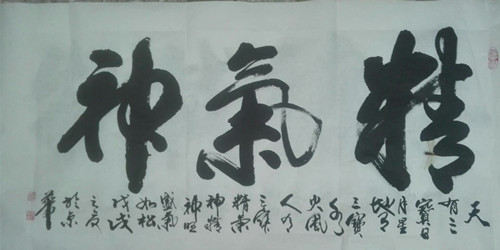 精氣神
天
有三
寶日
月星
地有
三寶
水
火風
人有
三寶
精氣
神精
神旺
盛氣
如松
戊戌
之夏
於京
華